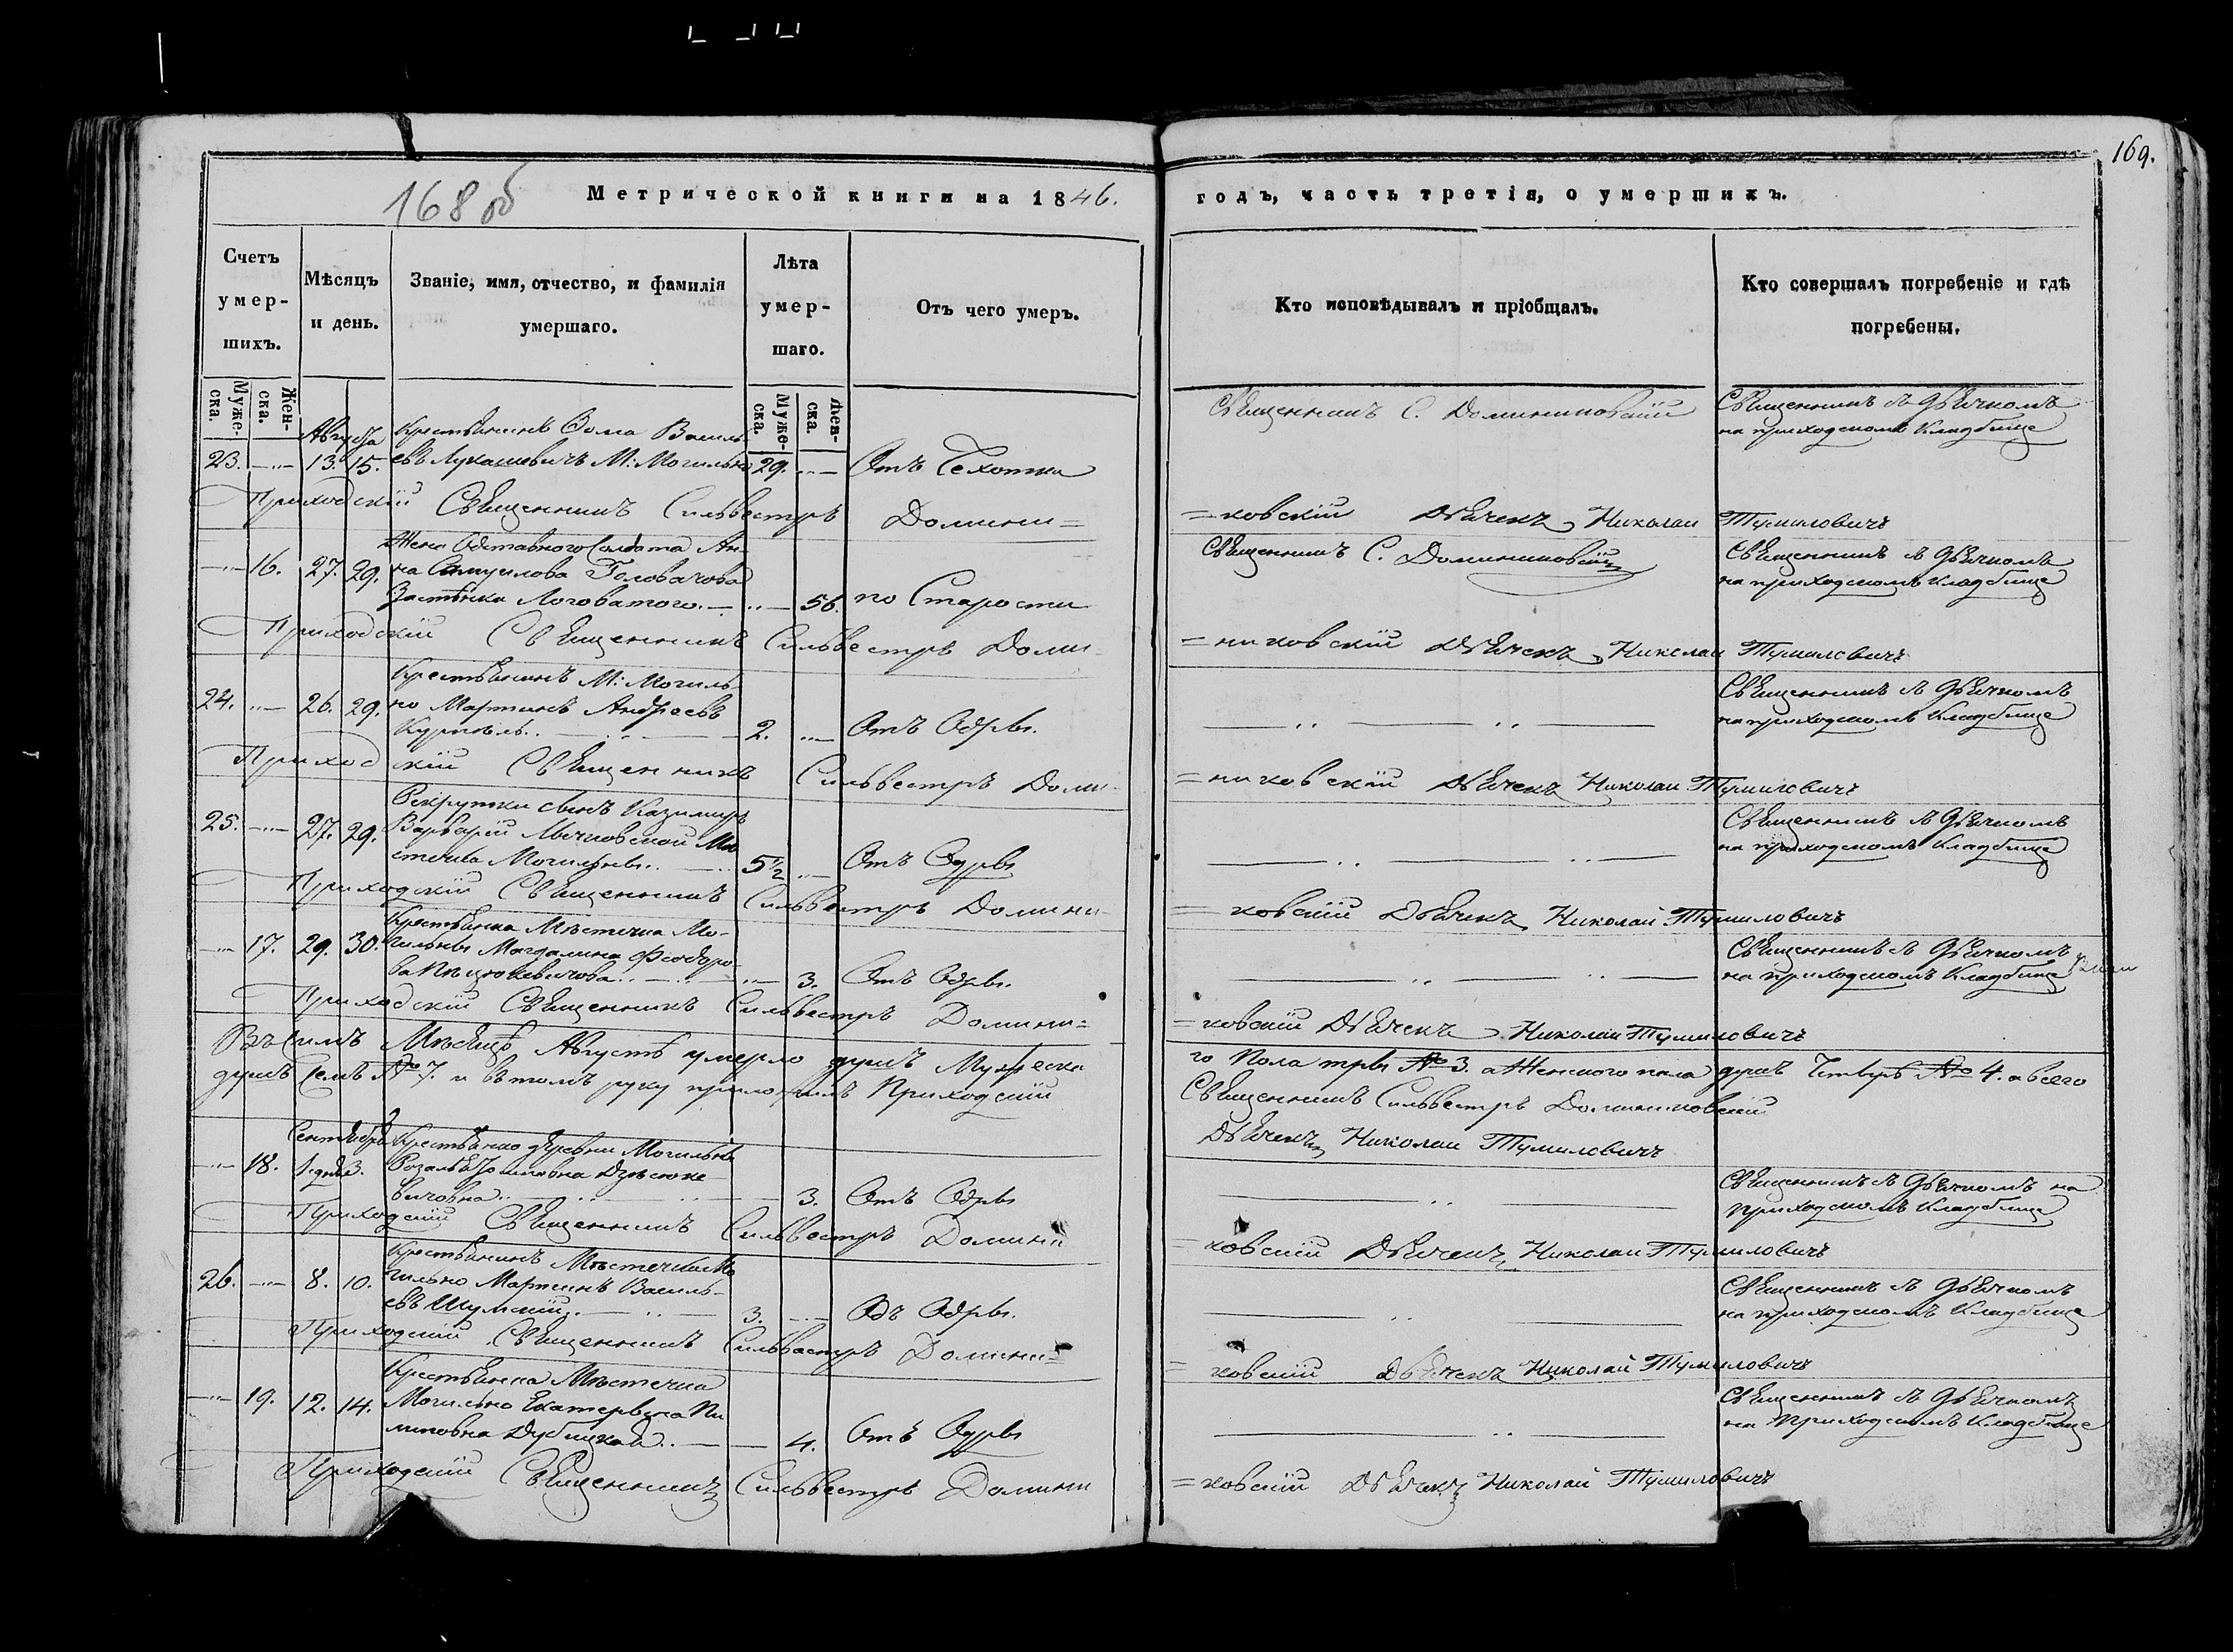 169.
168 об
Метрической книги на 1846.
годъ, часть третія, о умершихъ.
Счетъ умер-шихъ.
Мѣсяцъ и день.
Званіе, имя, отчество, и фамилія умершаго.
Лѣта умер-шаго.
Отъ чего умеръ.
Кто исповѣдывалъ и пріобщалъ.
Кто совершалъ погребеніе и гдѣ погребены.
Муже-ска.
Жен-ска.
Муже-ска.
Жен-ска.
Августа
Крестьянинъ Фома Василь
23. 13. 15. евъ Лукашевичъ М: Могильно 29. Отъ Сехотки
Священникъ С. Доминиковскій
Священникъ съ Дьячкомъ
на приходскомъ Кладбище
Приходскій Священникъ Сильвестръ Домини=
=ковскій Дьячекъ Николай Тумиловичъ
Жена Одставного Солдата Ан-
16. 27. 29. на Самуилова Головачова
Застѣнка Логоватого. 56. по Старости
Священникъ С. Доминиковскій
Священникъ съ Дьячкомъ
на приходскомъ Кладбище
Приходскій Священникъ Сильвестръ Доми-
=никовскій Дьячекъ Николай Тумиловичъ
Крестьянинъ М: Могиль-
24. 26. 29. но Мартинъ Андреевъ
2. Отъ Одры.
Священникъ съ Дьячкомъ
на приходскомъ Кладбище
Приходскій Священникъ Сильвестръ Доми-
=никовскій Дьячекъ Николай Тумиловичъ
Рекрутки сынъ Казимиръ
25. 27. 29. Варварыи Мычковской Мѣ
стечка Могильны. 5 1/2 Отъ Одры
Священникъ съ Дьячкомъ
на приходскомъ Кладбище
Приходскій Священникъ Сильвестръ Домини-
=ковскій Дьячекъ Николай Тумиловичъ
Крестьянка Мѣстечка Мо-
17. 29. 30. гильны Магдалина Феодоро-
3. Отъ Одры.
Священникъ съ Дьячкомъ
на приходскомъ Кладбище
Приходскій Священникъ Сильвестръ Домини=
=ковскій Дьячекъ Николай Тумиловичъ
Въ семъ Мѣсяцѣ Августѣ умерло душъ Мужеска
го Пола тры № 3. а Женского пола душъ Четыръ № 4. а всего
душъ Семъ № 7. и въ томъ руку приложилъ Приходскій
Священникъ Сильвестръ Доминиковскій
Дьячекъ Николай Тумиловичъ
Сентября Крестьянка деревни Могильны
18. 1. дня 3. Розалья
вичовна 3. Отъ Одры
Священникъ съ Дьячкомъ на
приходскомъ Кладбище
Приходскій Священникъ Сильвестръ Домини
=ковскій Дьячекъ Николай Тумиловичъ
Крестьянинъ Мѣстечка Мо
26. 8. 10. гильно Мартинъ Василь-
евъ Шумскій. 3. Одъ Одры.
Священникъ съ Дьячкомъ
на приходскомъ Кладбище
Приходскій Священникъ Сильвестръ Домини=
=ковскій Дьячекъ Николай Тумиловичъ
Крестьянка Мѣстечка
19. 12. 14. Могильно Екатерына Фи
липовна Дубицкая. 4. Отъ Одры
Священникъ съ Дьячкомъ
на Приходскомъ Кладбище
Приходскій Священникъ Сильвестръ Домини
=ковскій Дьячекъ Николай Тумиловичъ